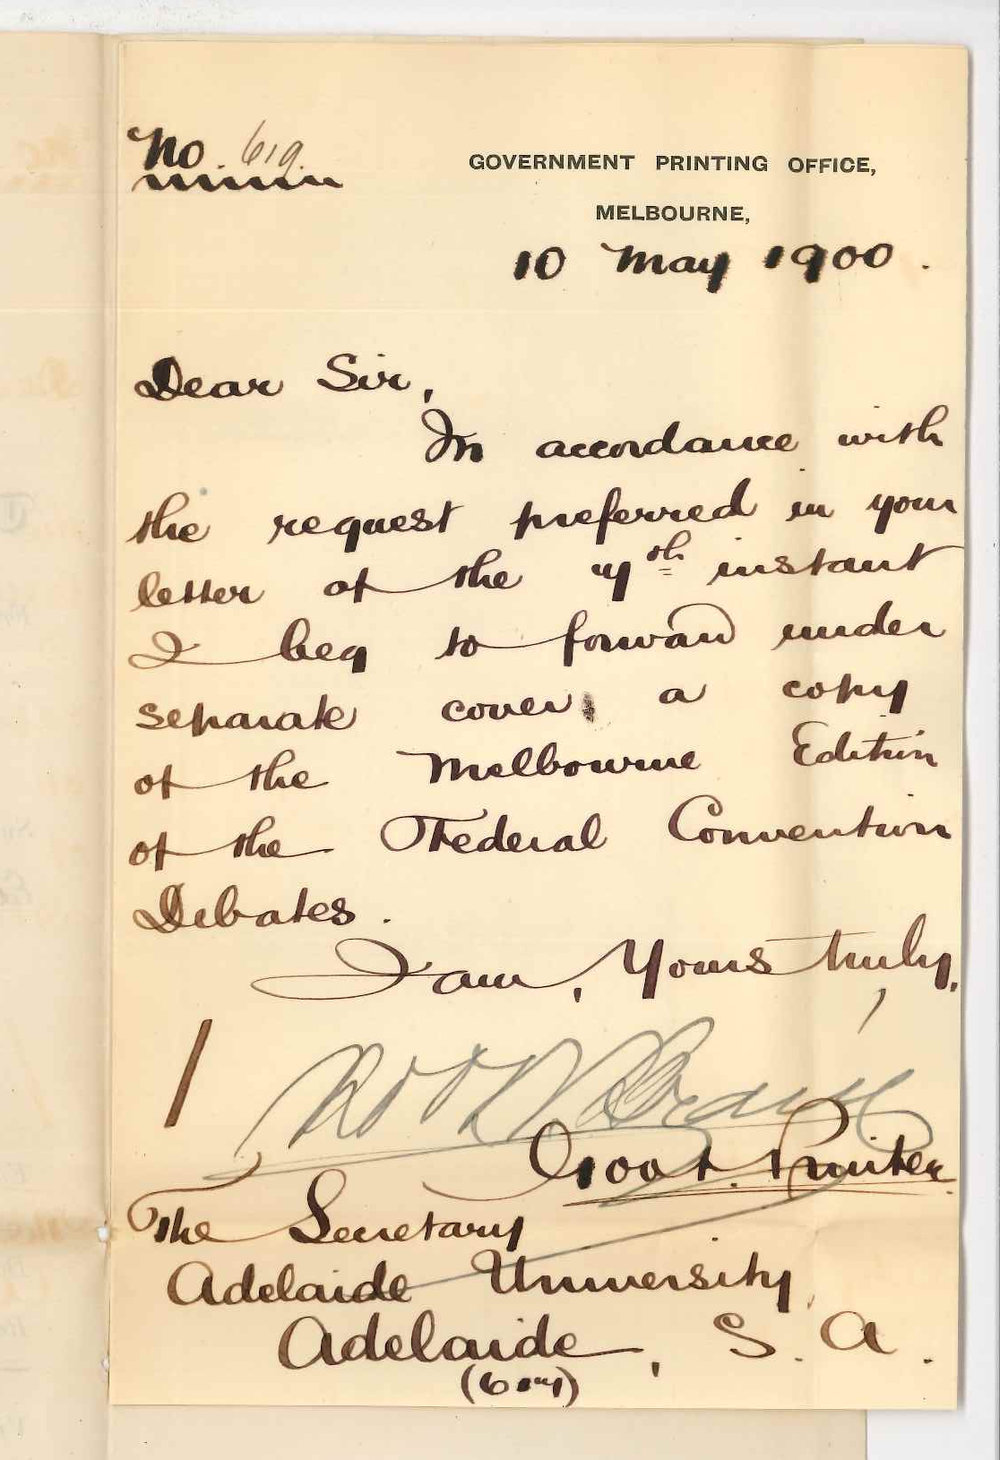 No. 619.
GOVERNMENT PRINTING OFFICE,
MELBOURNE,
10 May 1900.
Dear Sir,
In accordance with
the request preferred in your
letter of the 7th instant
I beg to forward under
separate cover a copy
of the Melbourne Edition
of the Federal Convention
Debates.
I am, Yours truly,
Govt. Printer.
The Secretary
Adelaide University,
Adelaide, S. A.